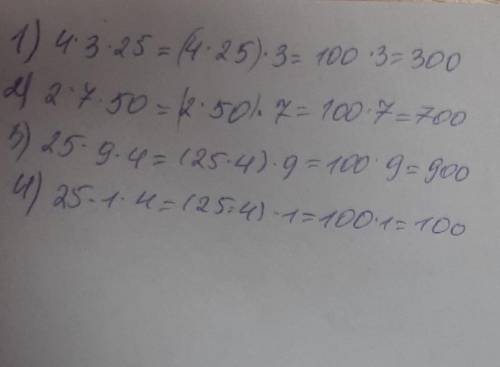 1) 4·3·25=(4·25)·3=100·3=300
2) 2·7·50=(2·50)·7=100·7=700
3) 25·9·4=(25·4)·9=100·9=900
4) 25·1·4=(25·4)·1=100·1=100